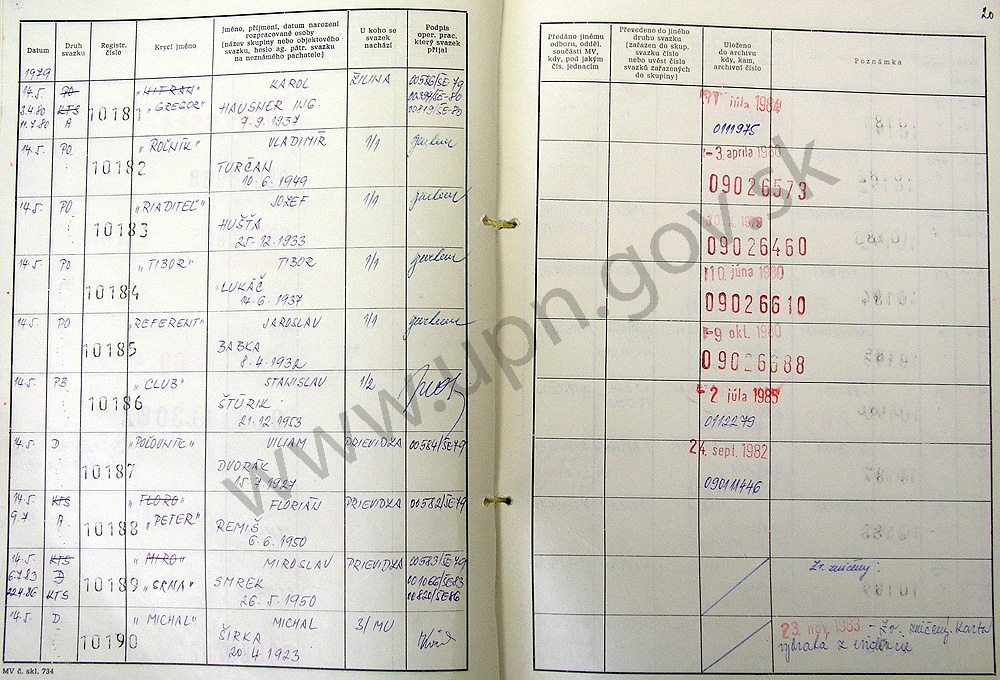 Datum
Druh svazku
Registr. číslo
Krycí jméno
Jméno, příjmení, datum narození rozpracované osoby [název skupiny nebo objektového svazku, heslo ag. pátr. svazku na neznámého pachatele]
U koho se svazek nachází
Podpis oper. prac. který svazek přijal
1979
14.5. PO "HITRAN" KAROL ŽILINA 00586/ŠE-79
3.4.80 KTS 10181 "GREGOR" HAUSNER ING 00394/ŠE-80
11.7.80 A 7.9.1937 00819/ŠE-80
14.5. PO "ROĽNÍK" VLADIMÍR 1/1
10182 TURČAN
10.6.1949
14.5. PO "RIADITEĽ" JOZEF 1/1
10183 HUŠŤA
25.12.1933
14.5. PO "TIBOR" TIBOR 1/1
10184 LUKÁČ
14.6.1937
14.5. PO "REFERENT" JAROSLAV 1/1
10185 BABKA
8.4.1932
14.5. PB "CLUB" STANISLAV 1/2
10186 ŠTÚRIK
21.12.1953
14.5. D "POĽOVNÍK" VILIAM PRIEVIDZA 00584/ŠE-79
10187 DVORÁK
15.7.1927
14.5. KTS "FLORO" FLORIÁN PRIEVIDZA 00582/ŠE-79
9.7. A 10188 "PETER" REMIŠ
6.6.1950
14.5. KTS "MIRO" MIROSLAV PRIEVIDZA 00583/ŠE-79
6.7.83 D 10189 "SRNA" SMREK 001066/ŠE-83
22.4.86 KTS 26.5.1950 00820/ŠE-86
14.5. D "MICHAL" MICHAL 3/MU
10190 ŠIRKA
20.4.1923
MV č. skl. 734
20
Předáno jinému odboru, odděl. součásti MV, kdy, pod jakým čís. jednacím
Převedeno do jiného druhu svazku [zařazen do skup. svazku číslo nebo uvést čísla svazků zařazených do skupiny]
Uloženo do archivu kdy, kam, archivní číslo
Poznámka
júla 1984
0111975
-3. apríla 1980
09026573
1979
09026460
10. júna 1980
09026610
-9. okt. 1980
09026688
-2. júla 1985
0112279
24. sept. 1982
090111446
Zv. zničený
23. nov. 1983 - Zv. zničený. Karta
vybratá z evidencie
www.upn.gov.sk